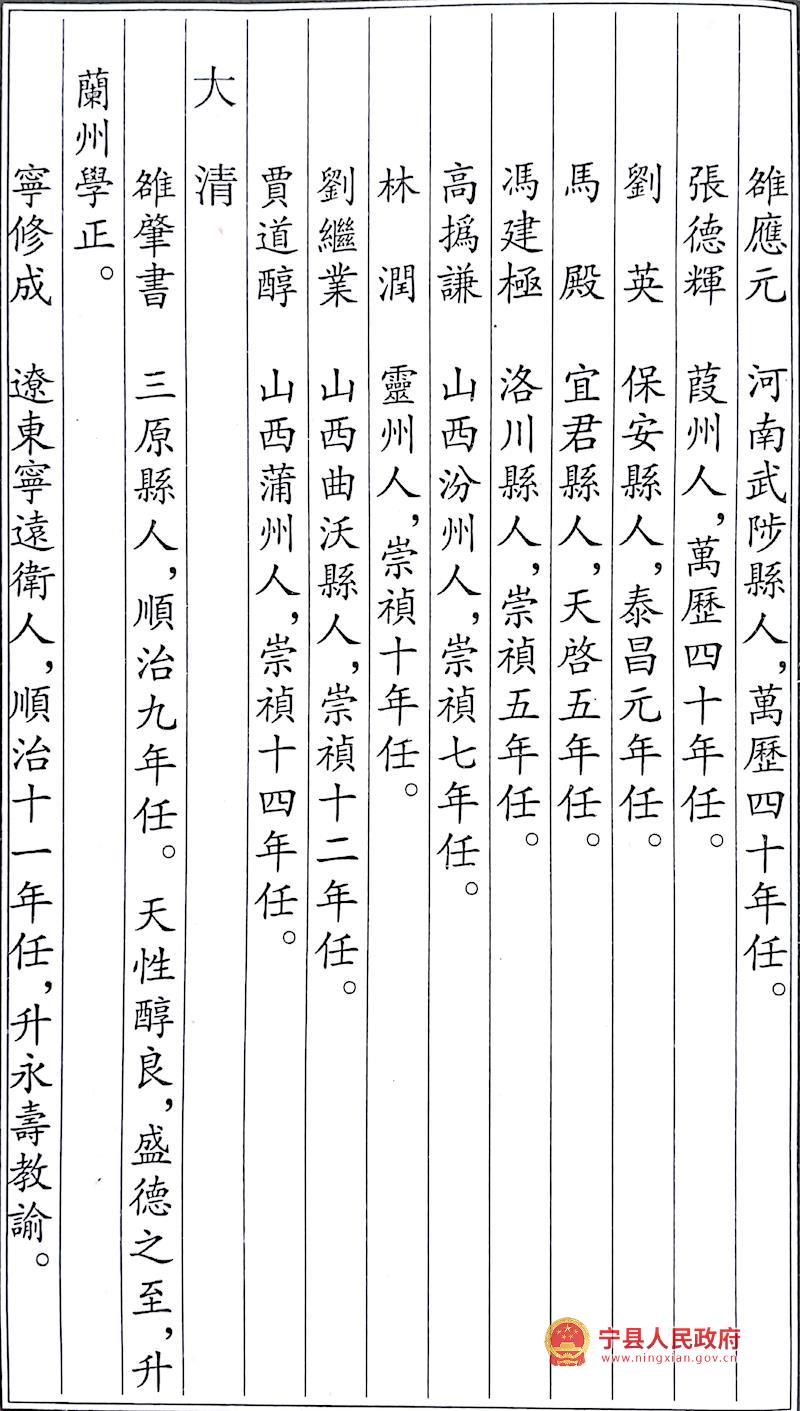 雒應元　河南武陟縣人，萬歷四十年任。
張德輝　葭州人，萬歷四十年任。
劉　英　保安縣人，泰昌元年任。
馬　殿　宜君縣人，天啓五年任。
馮建極　洛川縣人，崇禎五年任。
高撝謙　山西汾州人，崇禎七年任。
林　潤　靈州人，崇禎十年任。
劉繼業　山西曲沃縣人，崇禎十二年任。
賈道醇　山西蒲州人，崇禎十四年任。
大　清
雒肇書　三原縣人，順治九年任。天性醇良，盛德之至，升
蘭州學正。
寧修成　遼東寧遠衛人，順治十一年任，升永壽教諭。
宁县人民政府
www.ningxian.gov.cn